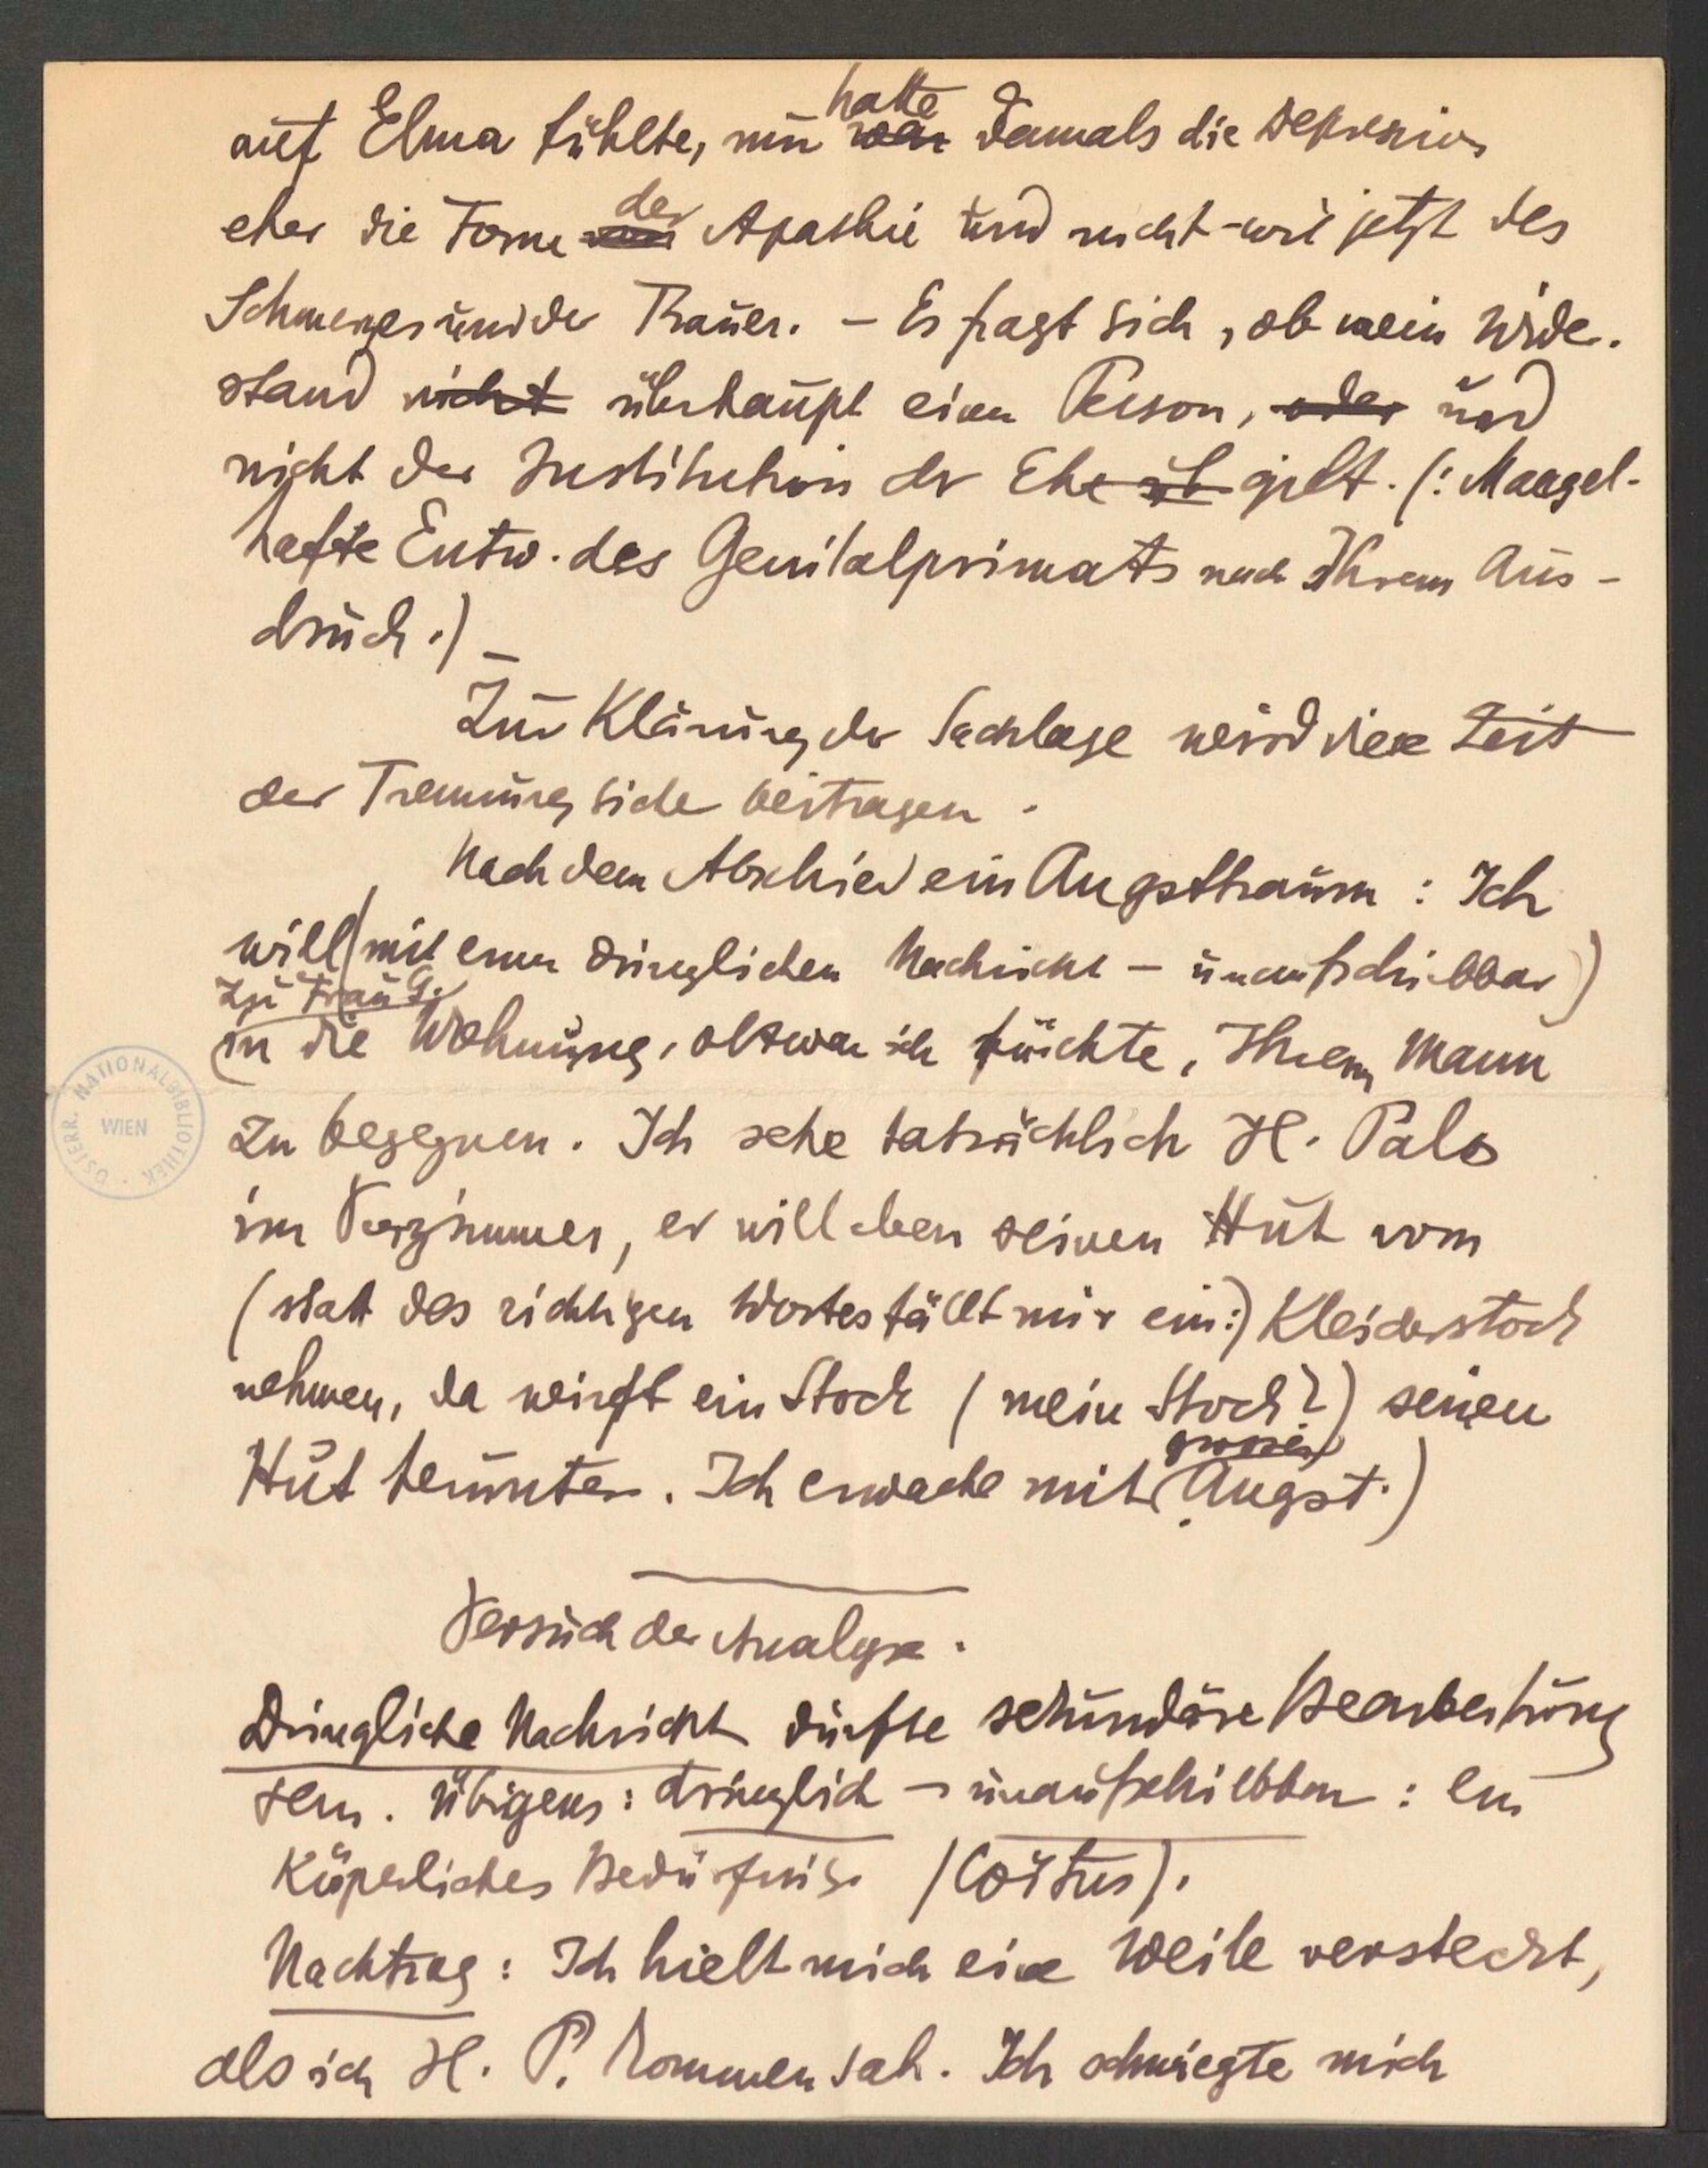 auf Elma fühlte, nur war hatte damals die Depression
eher die Form der Apathie und nicht - wie jetzt des
Schmerzes und der Trauer. – Es fragt sich, ob mein Wider-
stand nicht überhaupt einer Person, oder und
nicht der Institution der Ehe üb gilt. (: Mangel-
hafte Entw. des Genitalprimats nach Ihrem Aus-
druck.) –
Zur Klärung der Sachlage wird die Zeit
der Trennung sicher beitragen.
Nach dem Abschied ein Angsttraum : Ich
will (mit einer dringlichen Nachricht – unaufschiebbar)
zu Frau G.
in die Wohnung, obzwar ich fürchte, Ihrem Mann
zu begegnen. Ich sehe tatsächlich H. Palos
im Vorzimmer, er will eben seinen Hut vom
(statt des richtigen Wortes fällt mir ein:) Kleiderstock
nehmen, da wirft ein Stock (mein Stock?) seinen
Hut herunter. Ich erwache mit grosser Angst.)
Versuch der Analyse.
Dringliche Nachricht dürfte sekundäre Bearbeitung
sein. Übrigens : dringlich – unaufschiebbar : ein
Körperliches Bedürfniss (Coïtus).
Nachtrag : Ich hielt mich eine Weile versteckt,
als ich H. P. kommen sah. Ich schmiegte mich
ÖSTERR. NATIONALBIBLIOTHEK
WIEN